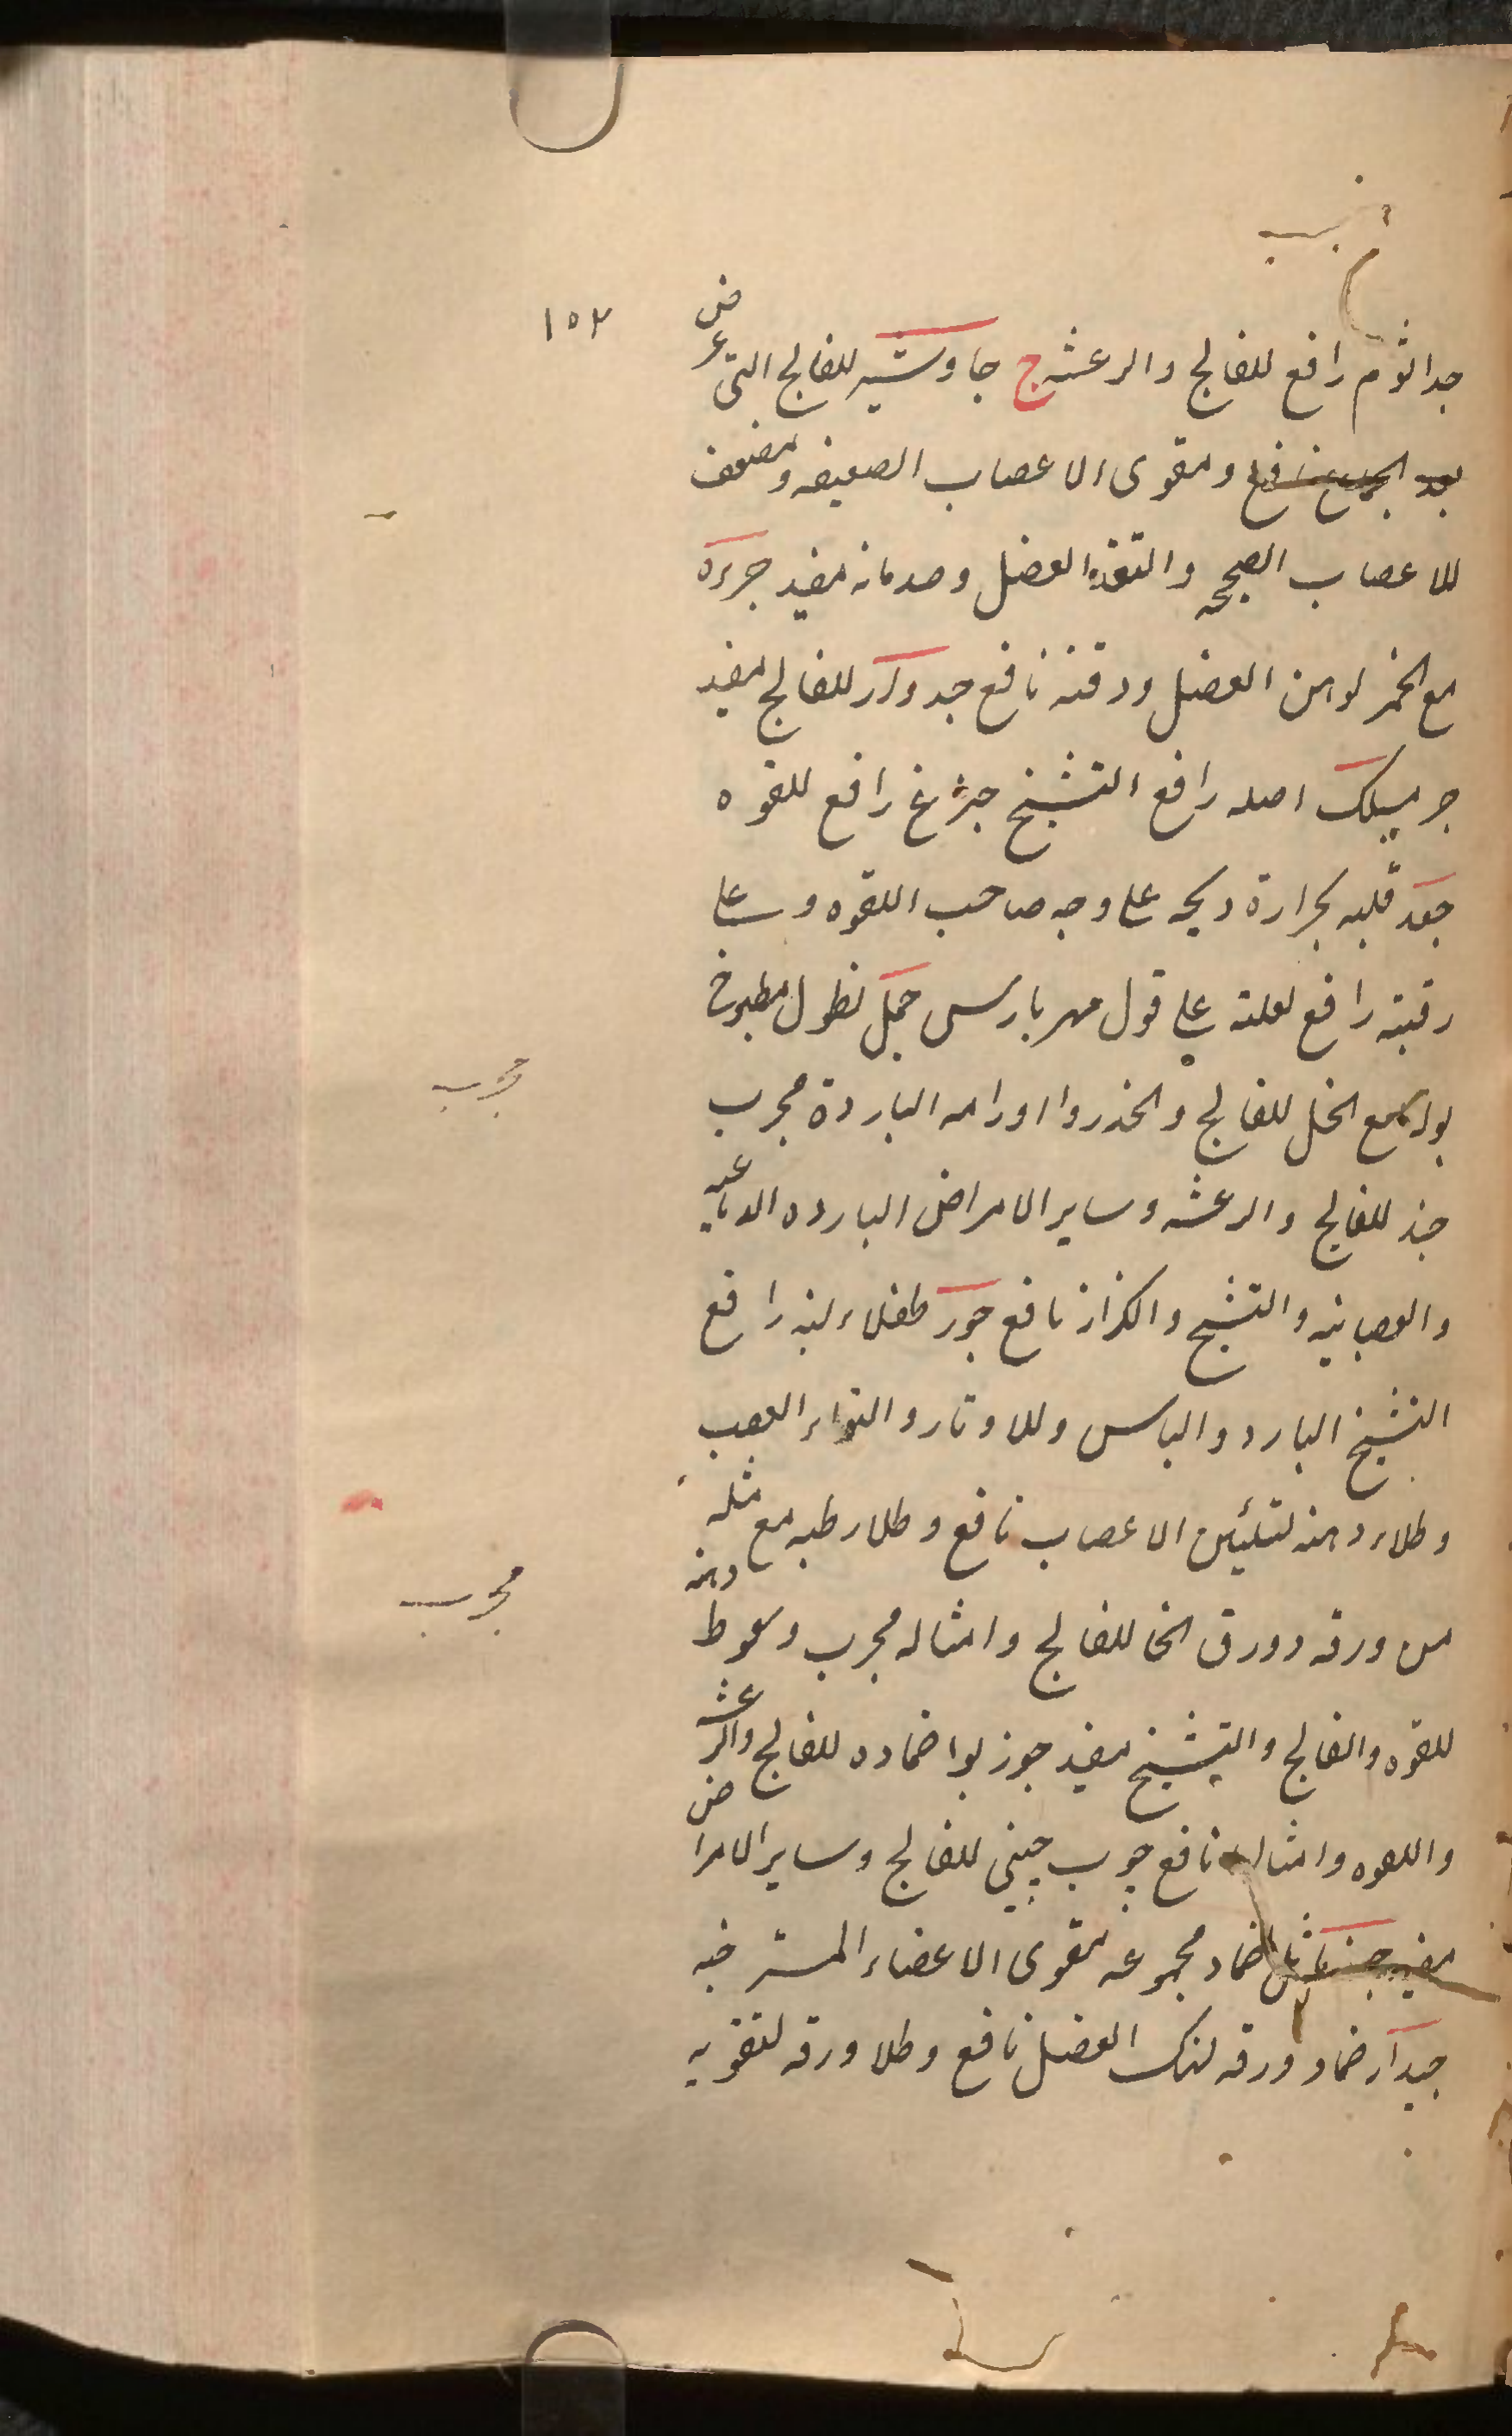 ١٥٢
جدا ثوم رافع للفالج والرعشه ج جاوشير للفالج التى عرض
بعد الجماع نافع ومقوى الاعصاب الضعيفه ومضعف
للاعصاب الصحيحه والتقذ العضل وصدمانه مفيد
مع الخمر لوهن العضل ودقنه نافع جدوار للفالج مفيد
اصله رافع التشنج رافع للقوه
جعد قلبه بحرارة ويحه على وجه صاحب اللقوه وعلى
رقبته رافع لعلته على قول مهربارس جمل نطول مطبوخ
بوله مع الخل للفالج والخدر واورامه الباردة مجرب
مجرب
جند للفالج والرعشه وساير الامراض البارده الدماغيه
والعصبانيه والتشنج والكزاز نافع جوز طفلاء لبنه رافع
التشنج البارد واليابس وللاوتار والتواء العصب
وطلاء دهنه لتليين الاعصاب نافع وطلا رطبه مع مثله
من ورقه وورق الحنا للفالج وامثاله مجرب وسعوط دهنه
مجرب
للقوه والفالج والتشنج مفيد جوز بوا ضماده للفالج والرعشه
واللقوه وامثاله نافع چوب چينى للفالج وساير الامراض
مفيد ضماد مجموعه مقوى الاعضاء المسترخيه
ضماد ورقه لهتك العضل نافع وطلا ورقه لتقويه